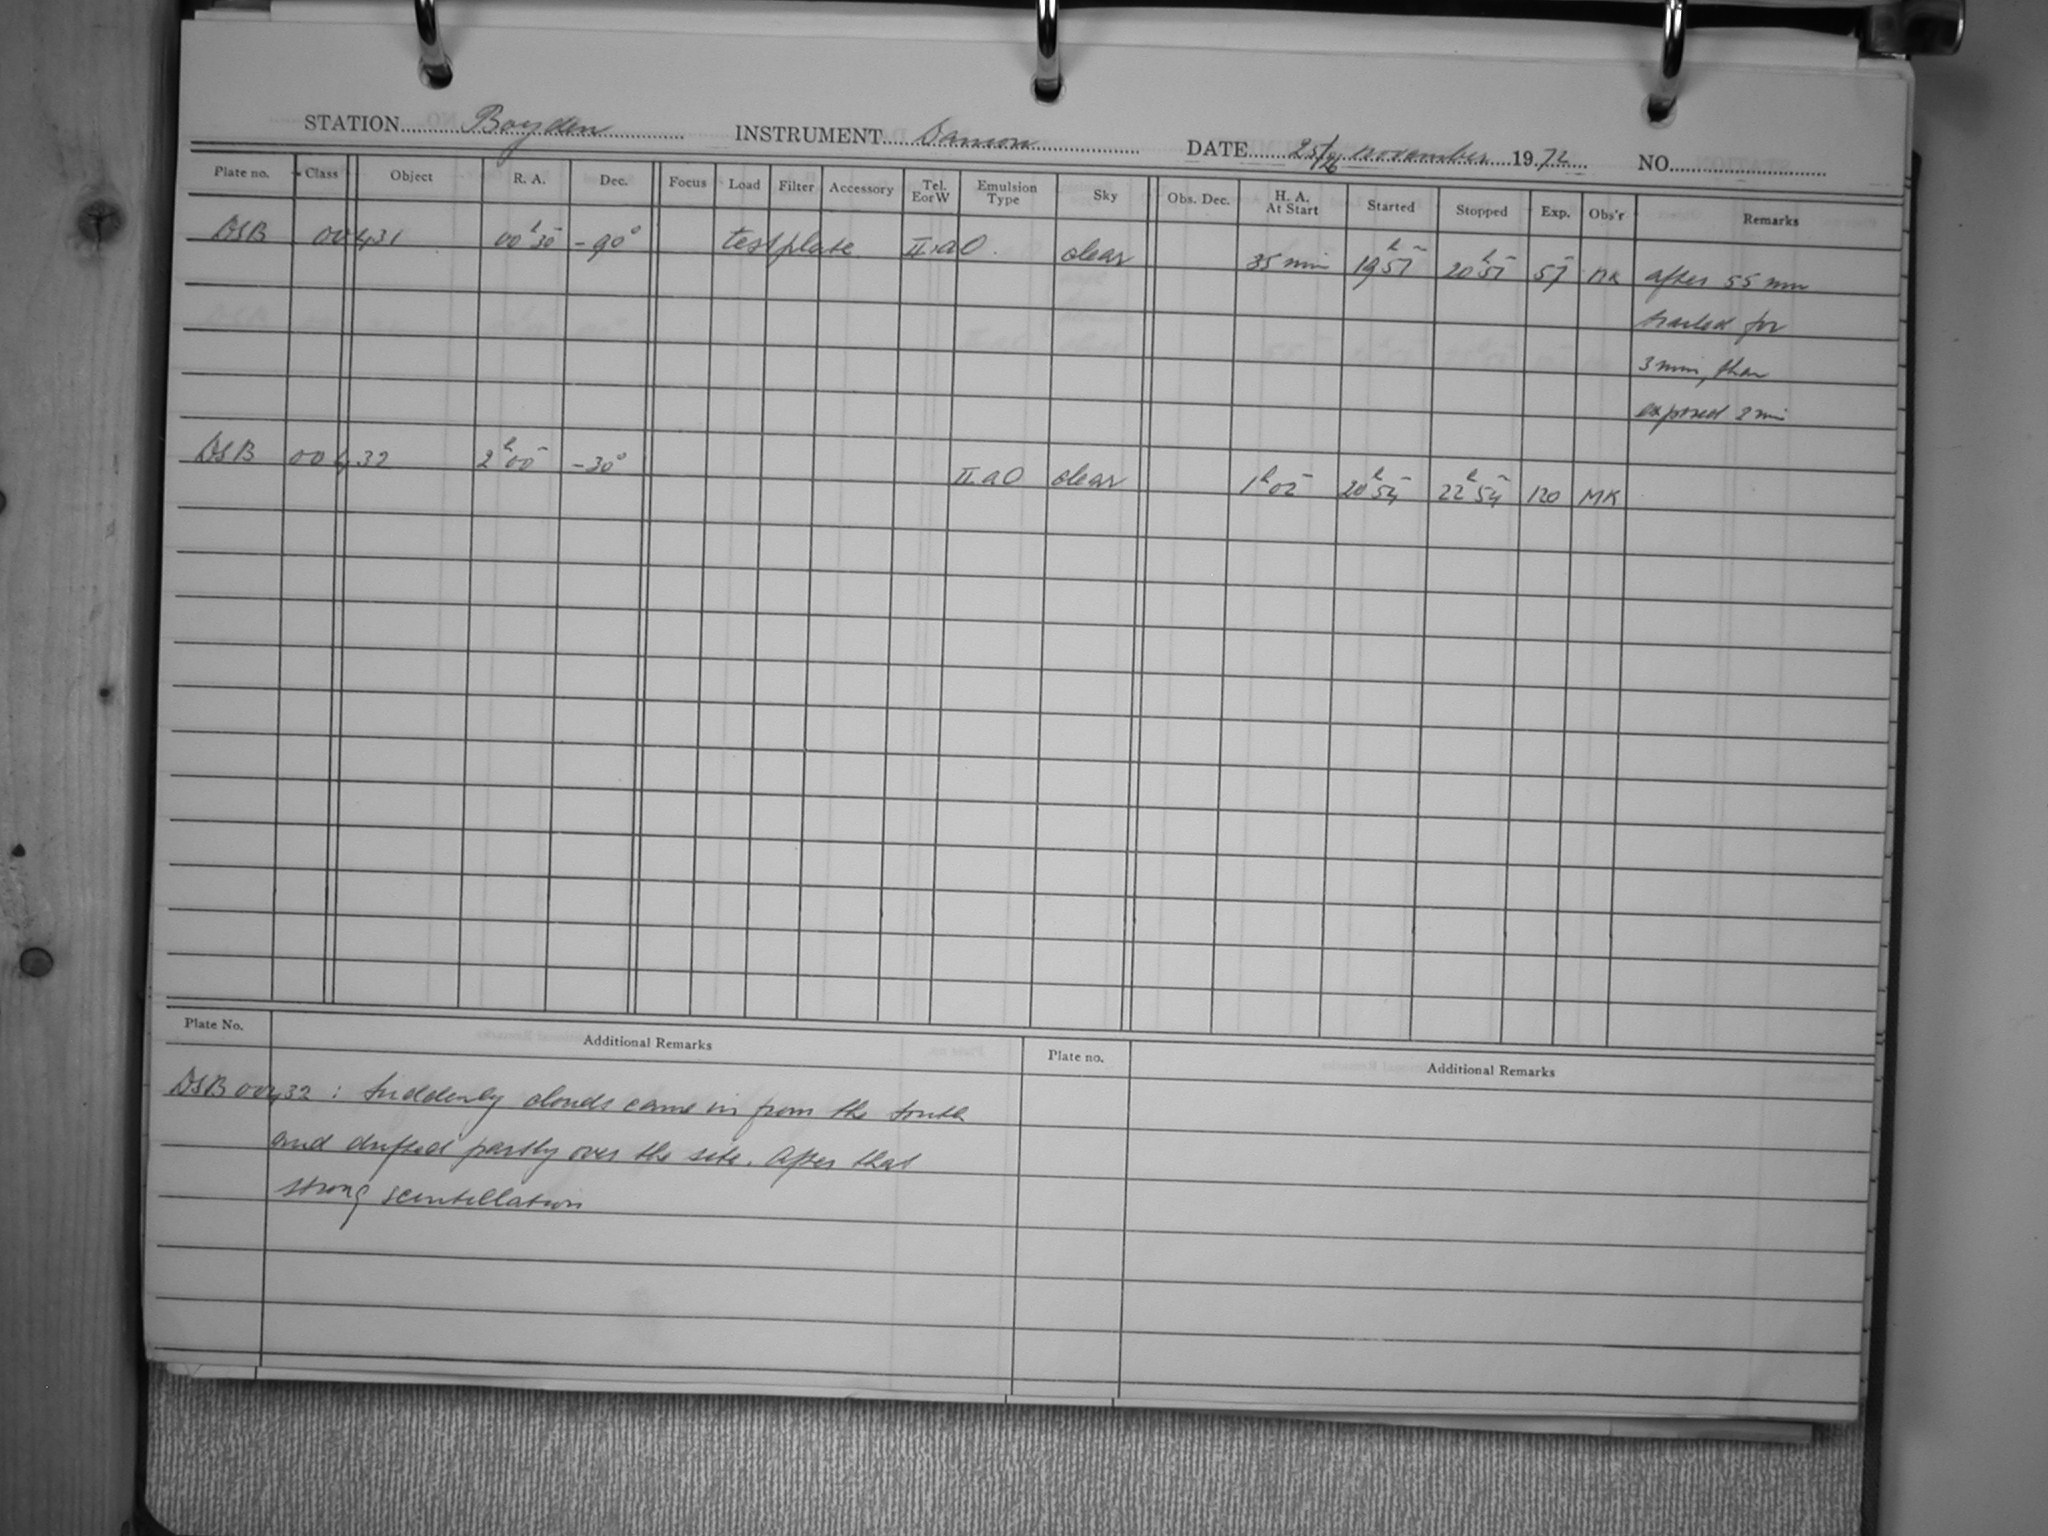 STATION Boyden INSTRUMENT Damon DATE 25/26 November 1972 NO.
Plate no. Class Object R. A. Dec. Focus Load Filter Accessory Tel. EorW Emulsion Type Sky Obs. Dec. H. A. At Start Started Stopped Exp. Obs'r Remarks
DSB 00431 00h 30m -90° testplate II aO. clear 35 min 19h 57m 20h 57m 57m MK after 55 min
trailed for
3 min, than
exposed 2 min
DSB 00432 2h 00m -30° II aO clear 1h 02m 20h 54m 22h 54m 120 MK
Plate No. Additional Remarks Plate no. Additional Remarks
DSB 00432 : Suddenly clouds came in from the south
and drifted partly over the site. After that
strong scintillation